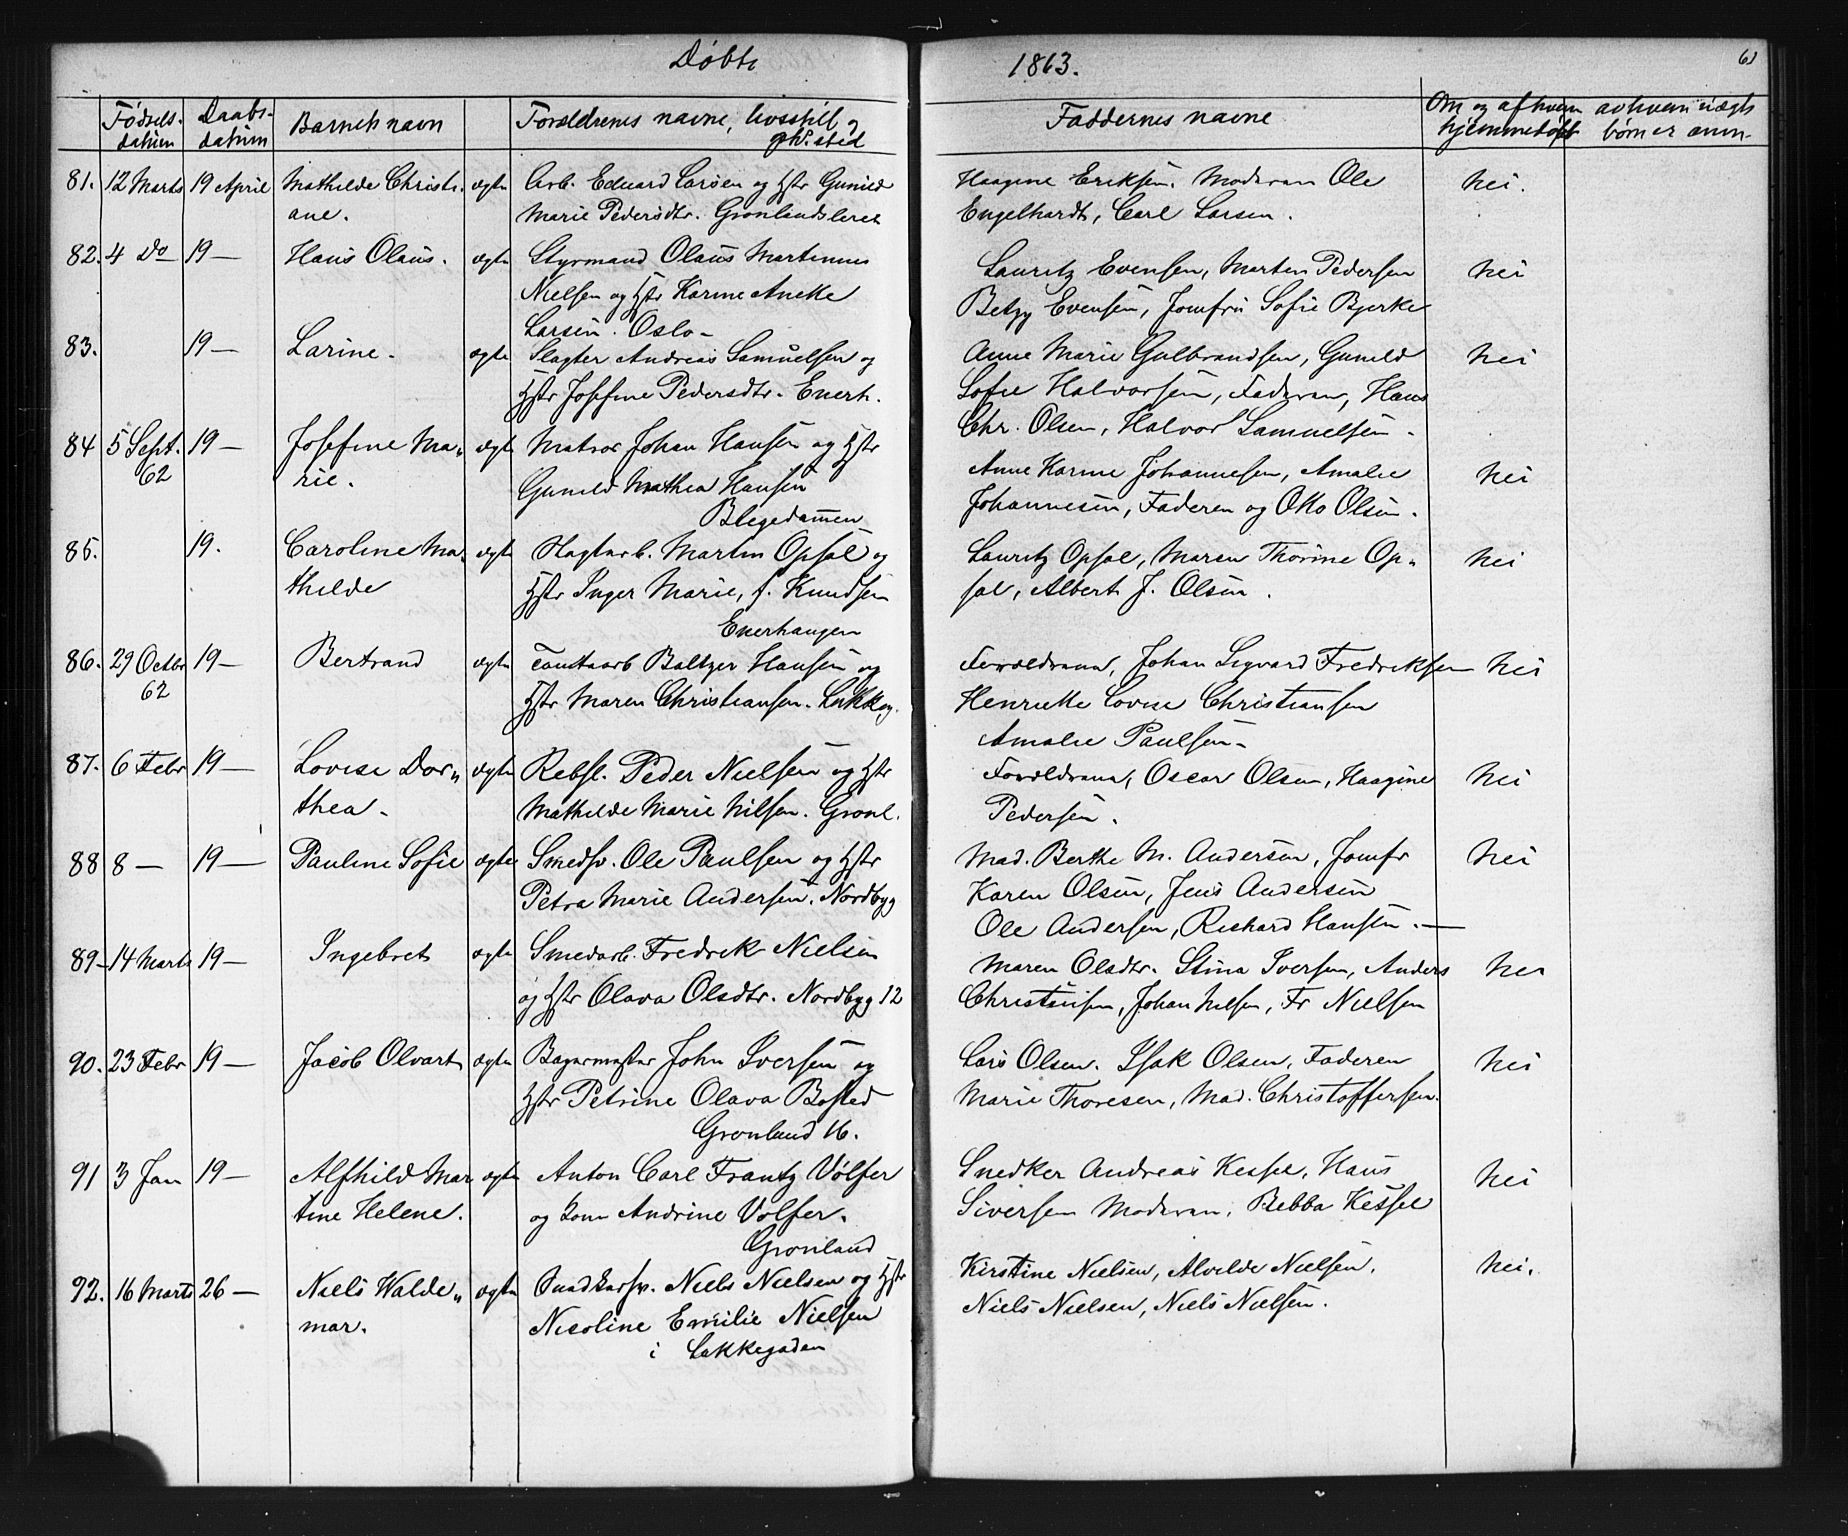 Døbte 1863.
Fødsels- datum
Daabs- datum
Barnets navn
Forældrenes navne, livsstill. og
opk. sted
Faddernes navne
Om og af hvem
hjemmedøbt
av hvem uægte
børn er anm-
81. 12 Marts 19 April Mathilde Christi- ægte Arb. Eduard Larsen og Hstr Gunild
ane. Marie Pedersdtr. Grønlandsleret
Haagine Eriksen. Moderen Ole nei.
Engelhardt, Carl Larsen.
82. 4 Do 19 — Hans Olaus. ægte Styrmand Olaus Martinius
Nielsen og Hstr Karine Aneke
Larsen. Oslo-
Lauritz Evensen, Marten Pedersen nei
Betzy Evensen, Jomfru Sofie Bjerke
83. 19 — Larine- ægte Slagter Andreas Samuelsen og
Hstr Josefine Pedersdtr. Enerh.
Anne Marie Gulbrandsen, Gunild nei
Sofie Halvorsen, Faderen, Hans
Chr. Olsen, Halvor Samuelsen.
84 5 Sept. 19 — Josefine Ma- ægte Matros Johan Hansen og Hstr
62 rie. Gunild Mathea Hansen
Blegedammen
Anne Karine Johannesen, Amalie nei
Johannesen, Faderen og Otto Olsen.
85. 19. Caroline Ma- ægte Slagtarb. Martin Opsal og
thilde Hstr Inger Marie, f. Knudsen
Enerhaugen
Lauritz Opsal, Maren Thorine Op- nei
sal, Albert J. Olsen.
86. 29 Octbr 19 — Bertrand ægte Tomtearb Baltzer Hansen og
62 Hstr Maren Christiansen. Lakkeg.
Forældrene, Johan Sigvard Fredriksen nei
Henriette Lovise Christiansen
Amalie Paulsen-
87. 6 Febr 19 — Lovise Dor- ægte Rebsl. Peder Nielsen og Hstr
thea- Mathilde Marie Nilsen. Grønl.
Forældrene, Oscar Olsen, Haagine nei
Pedersen.
88 8 — 19 — Pauline Sofie ægte Smedsv. Ole Paulsen og Hstr
Petra Marie Andersen. Nordbyg
Mad. Berthe M. Andersen, Jomfr nei
Karen Olsen, Jens Andersen
Ole Andersen, Richard Hansen. —
89- 14 Marts 19 — Ingebret ægte Smedarb. Fredrek Nielsen
og Hstr Olava Olsdtr. Nordbyg 12
Maren Olsdtr. Stina Iversen, Anders nei
Christensen, Johan Nilsen, Fr Nielsen
90. 23 Febr 19 — Jacob Olvart ægte Bagermester John Iversen og
Hstr Petrine Olava Bosted
Grønland 16.
Lars Olsen. Isak Olsen, Faderen nei
Marie Thoresen, Mad. Christoffersen.
91 3 Jan 19 — Alfhild Mar ægte Anton Carl Frantz Völfer
tine Helene. og Kone Andrine Völfer.
Grønland
Snedker Andreas Kessel, Hans nei
Siversen Moderen, Bebba Kessel
92. 16 Marts 26 — Niels Walde- ægte Snedkersv. Niels Nielsen og Hstr
mar. Nicoline Emilie Nielsen
i Lakkegaden
Kirstine Nielsen, Alvilde Nielsen. nei.
Niels Nielsen, Niels Nielsen.